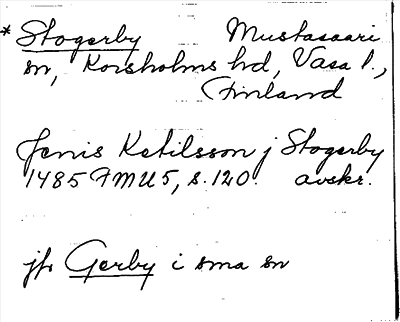 * Stogerby Mustasaari
sn, Korsholms hd, Vasa l.,
Finland
Jenis Ketilsson j Stogerby
1485 FMU5, s. 120. avskr.
jfr Gerby i sma sn